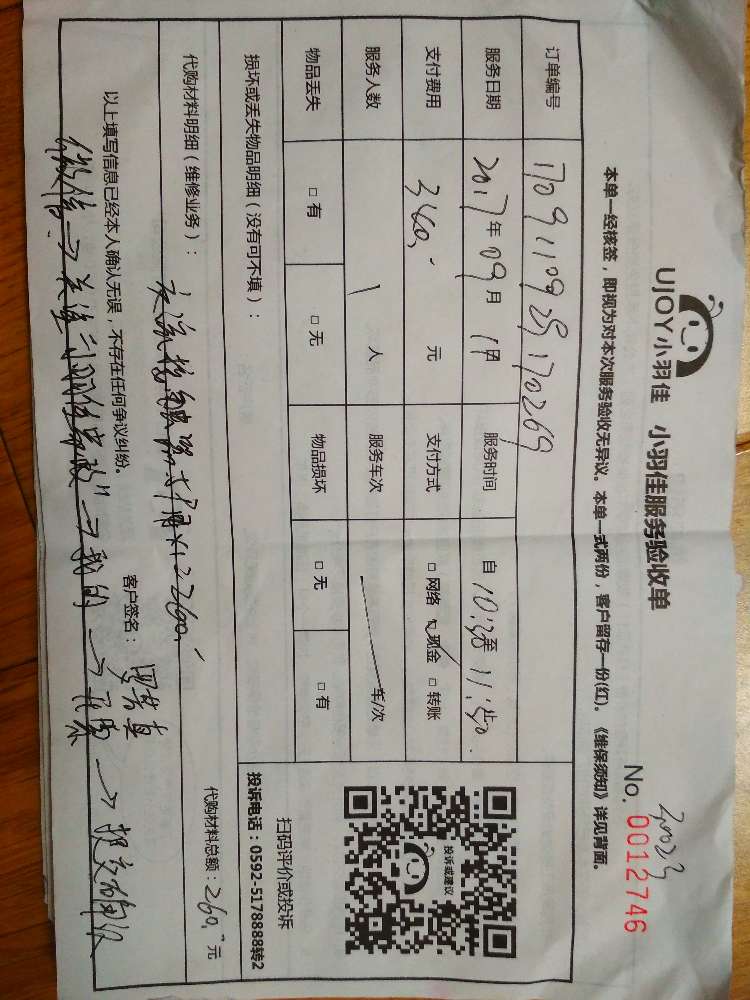 UJOY小羽佳 小羽佳服务验收单
No. 0012746
本单一经核签，即视为对本次服务验收无异议。本单一式两份，客户留存一份(红)。《维保须知》详见背面。
订单编号 1709110925170269
服务日期 2017年09月1日 服务时间 自10:30至11:50止
支付费用 360.- 元 支付方式 □网络 ☑现金 □转账
服务人数 1 人 服务车次 车/次
物品丢失 □有 □无 物品损坏 □无 □有
损坏或丢失物品明细（没有可不填）：
投诉或建议
扫码评价或投诉
投诉电话：0592-5178888转2
代购材料明细（维修业务）：
交流接触器 260.-
代购材料总额：260.- 元
以上填写信息已经本人确认无误，不存在任何争议纠纷。
客户签名：
微信→关注"小羽佳家政"→我的→